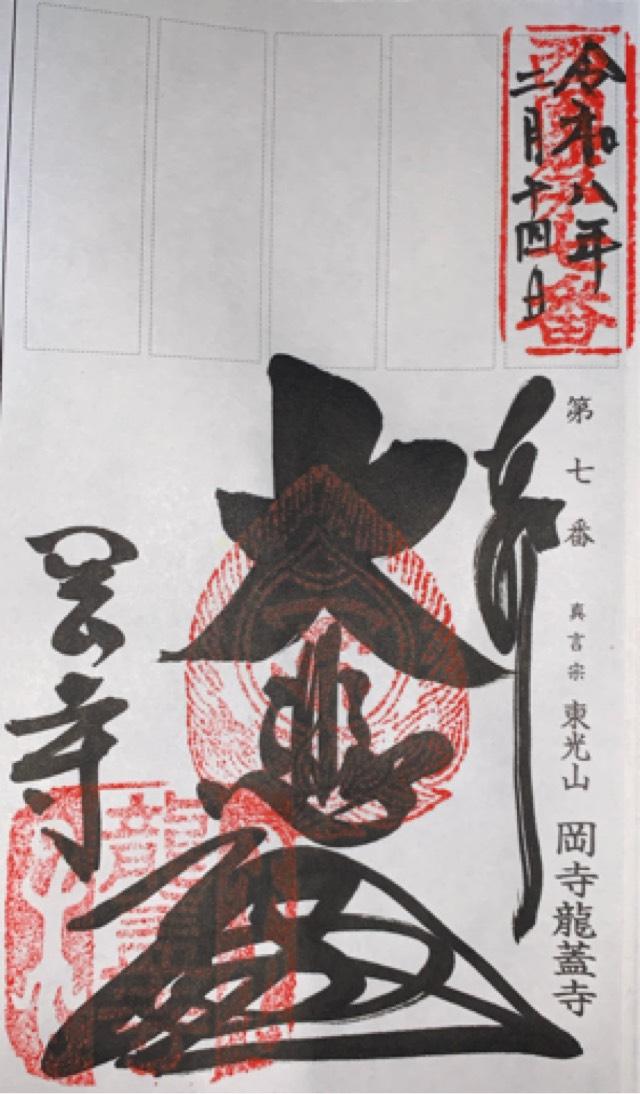 西国第七番
令和八年
二月十四日
第七番 真言宗 東光山 岡寺龍蓋寺
奉拝
大悲殿
岡寺